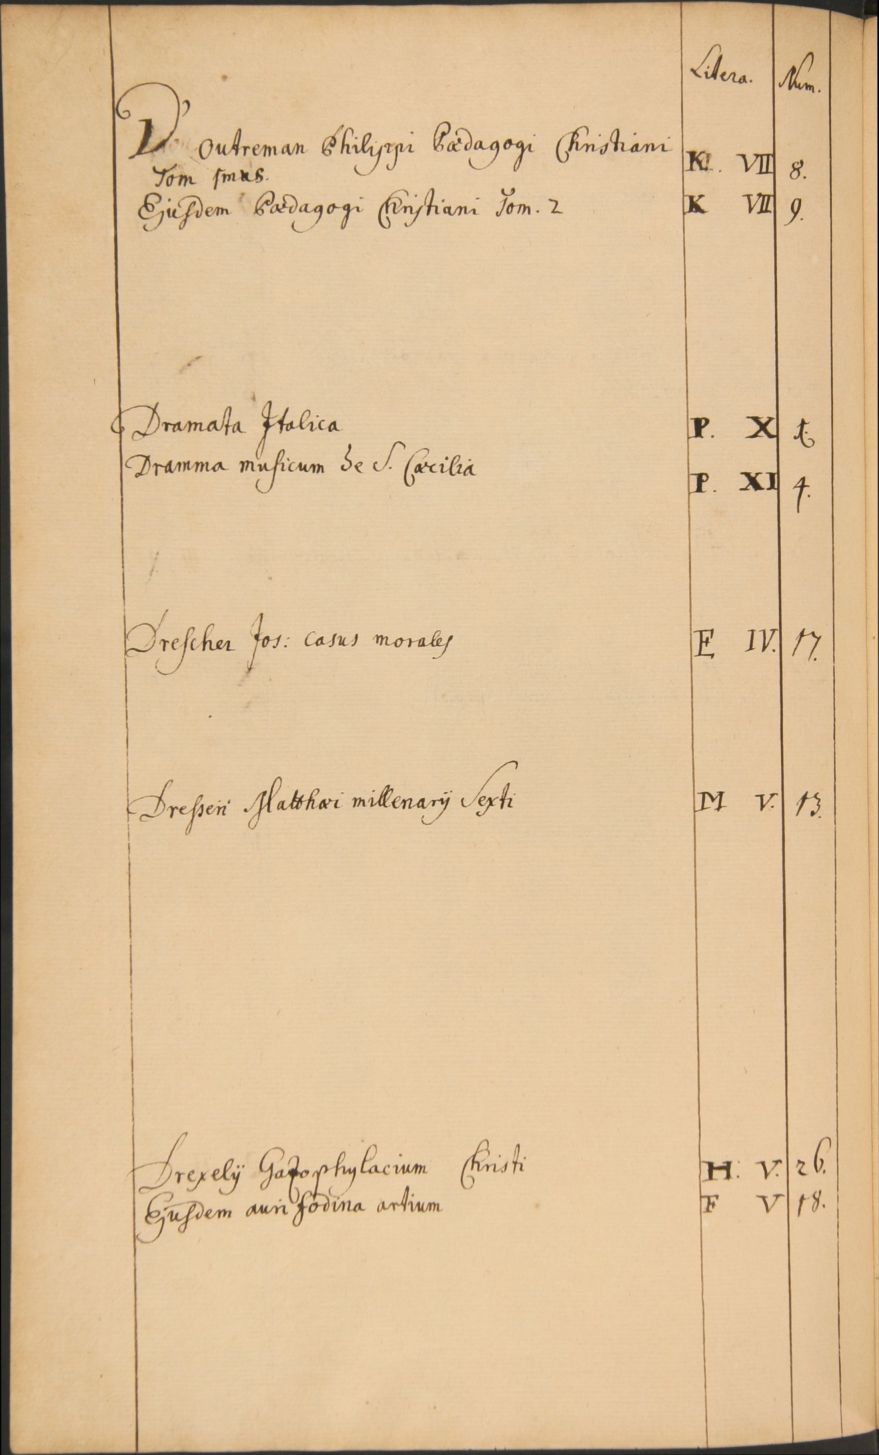 Litera. Num.
D'Outreman Philippi Pædagogi Christiani
Tom 1mus. K. VII 8.
Ejusdem Pædagogi Christiani Tom. 2 K VII 9.
Dramata Italica P. X 1.
Dramma musicum de S. Cæcilia P. XI 4.
Drescher Jos: casus morales E IV. 17.
Dresseri Matthæi millenarij Sexti M V. 13.
Drexelij Gazophylacium Christi H. V. 26.
Ejusdem aurifodina artium F V 18.